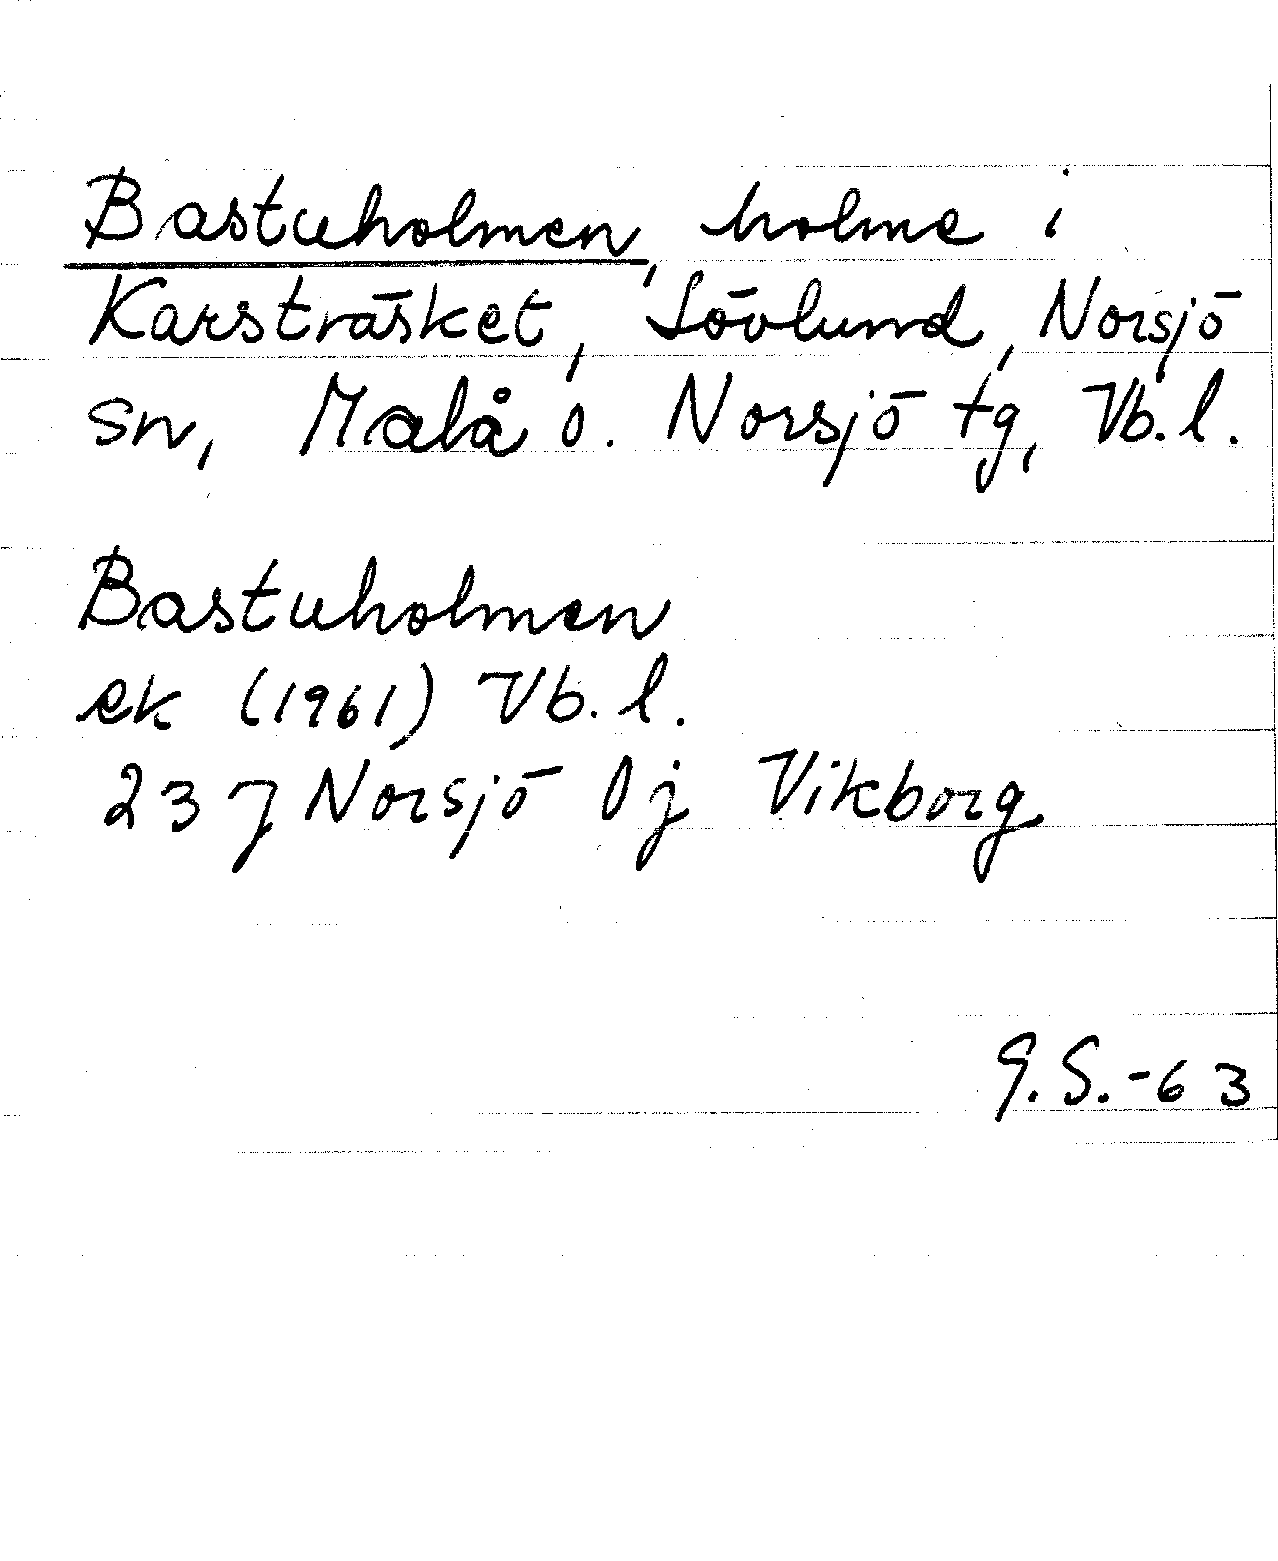 Bastuholmen, holme i
Karsträsket, Lövlund, Norsjö
sn, Malå o. Norsjö tg, Vb.l.
Bastuholmen
ek (1961) Vb.l.
23 J Norsjö 0j Vikborg
G.S.-63